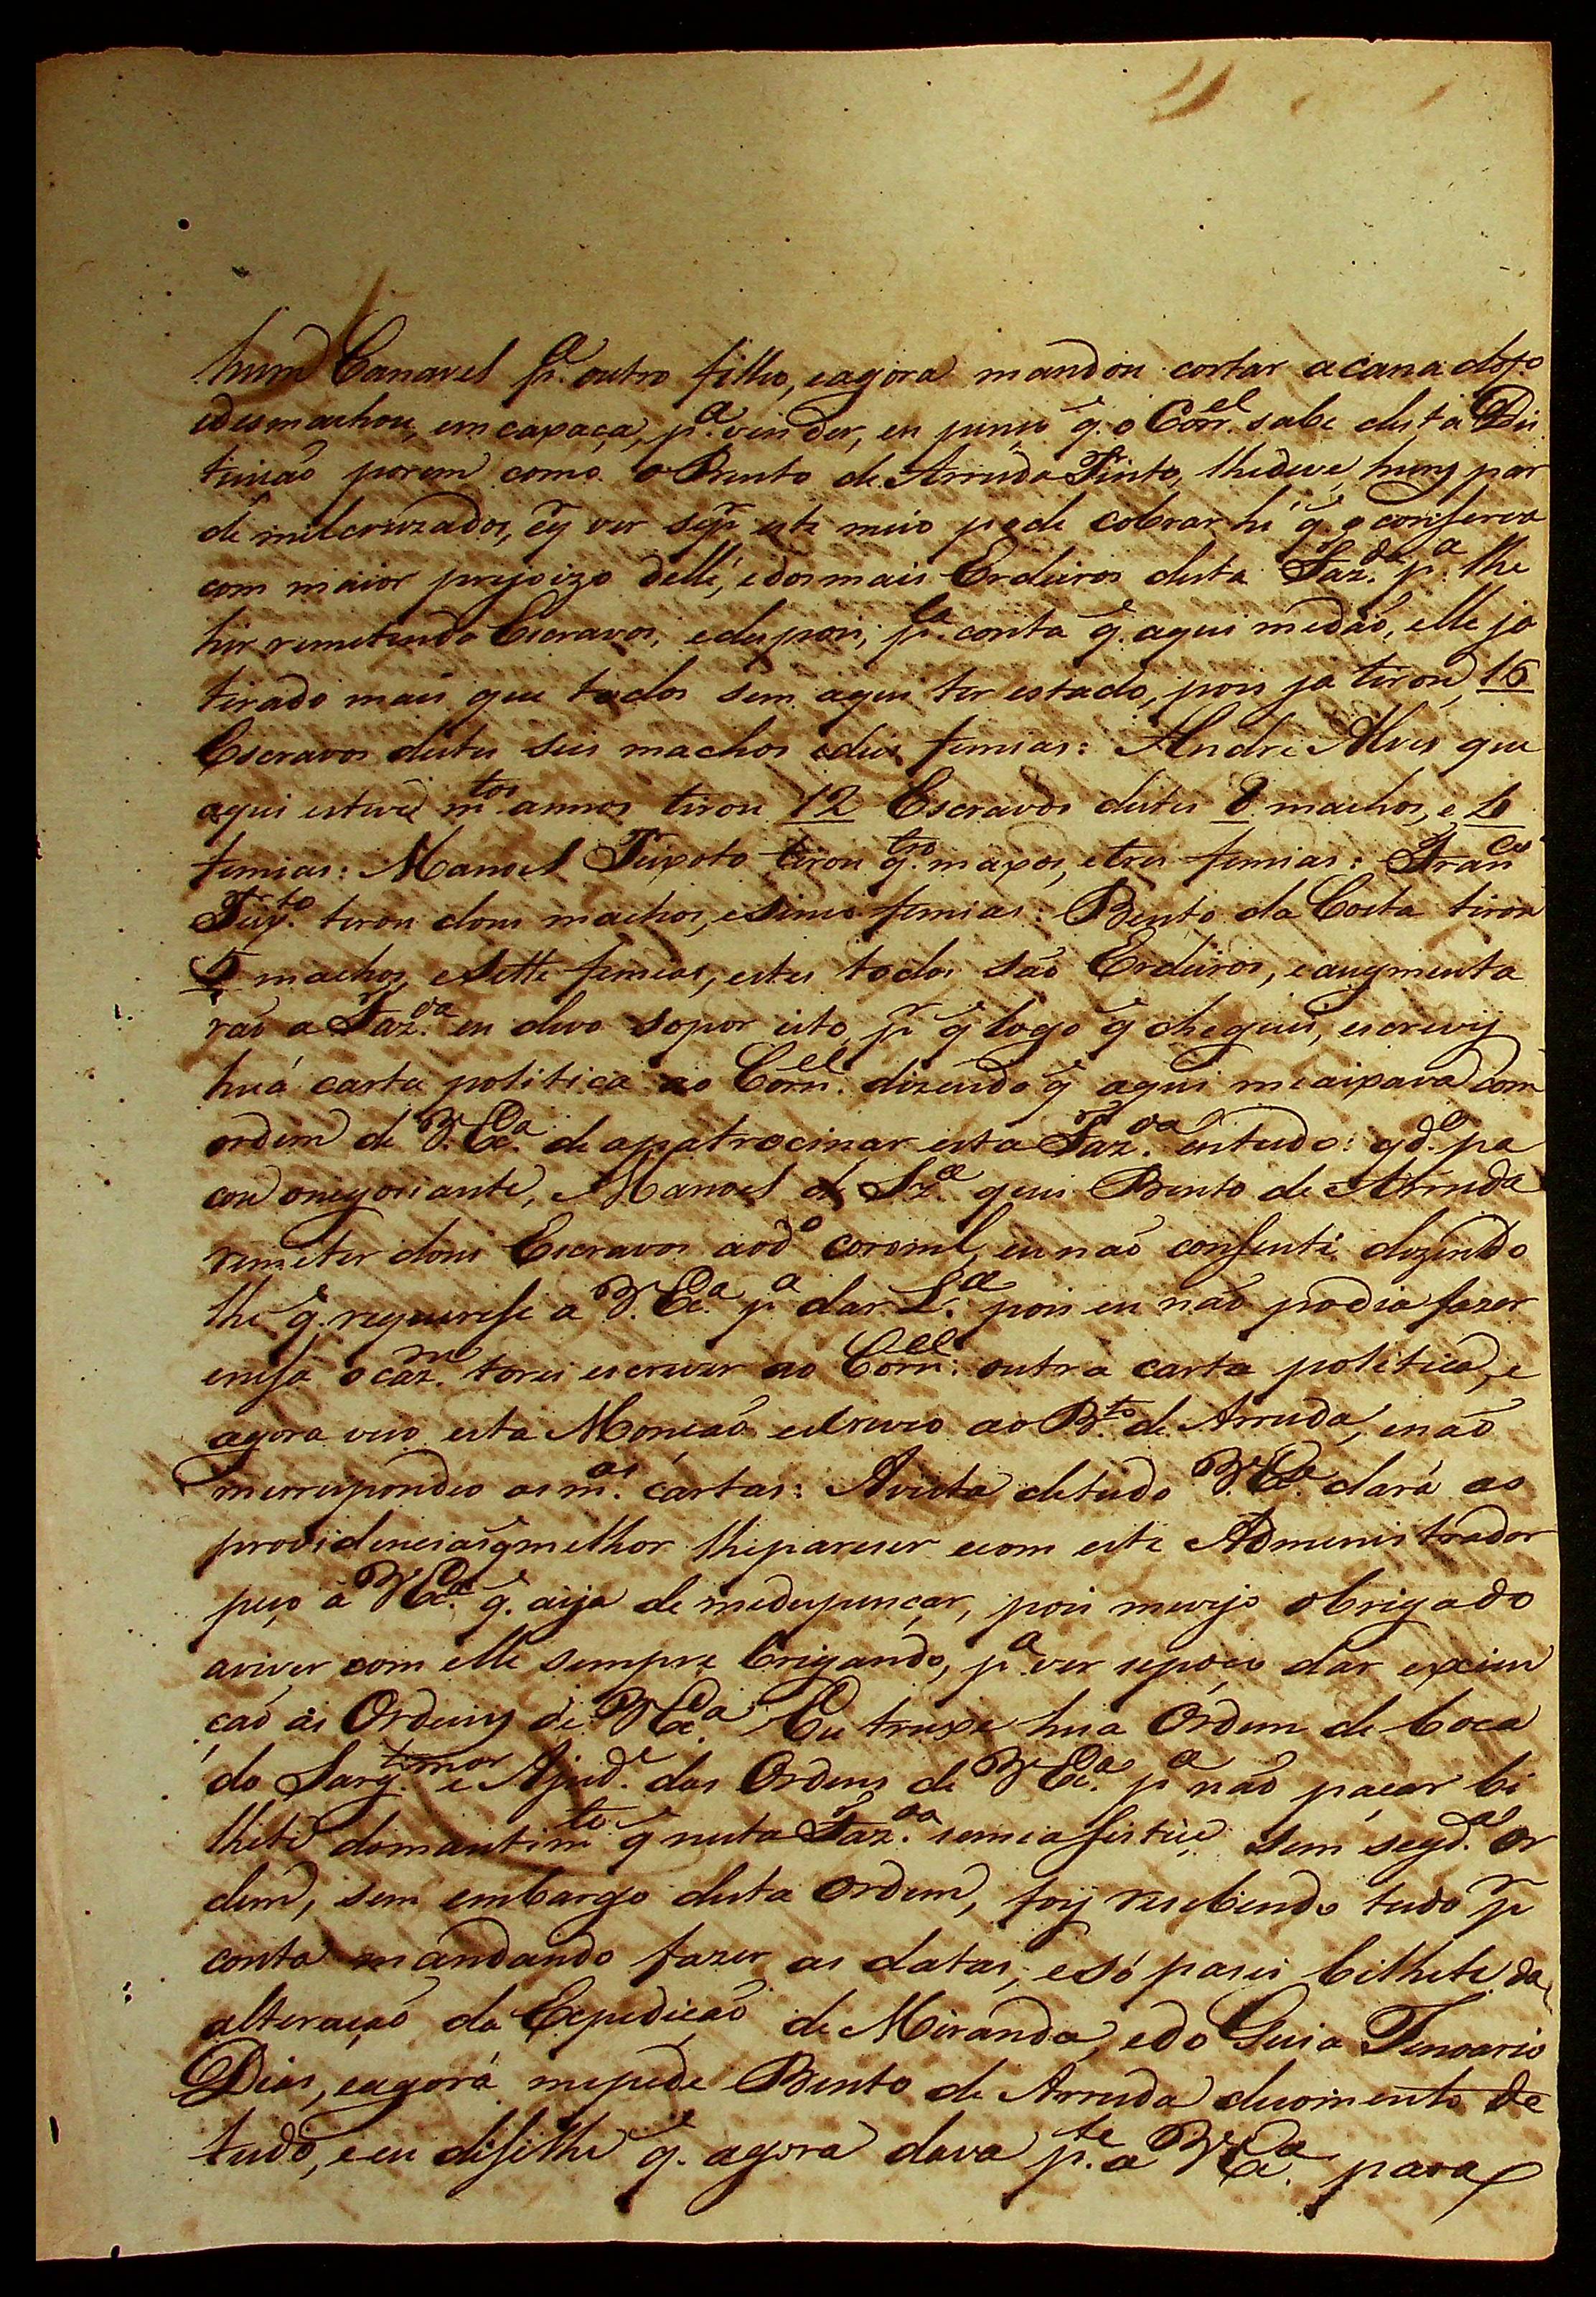 hum Canavel p.ª outro filho, eagora mandou cortar acana do f.º
edesmachou, em caxaça, p.ª vender, eu penço q̃. o Cor.el sabe desta Des
truisaõ porem como o Bento de Arruda Pinto, lhedeve, huns par
de milcruzados, e ver se p.r este meio pode cobrar hé q̃. o conserva
com maior prejoizo delle, edosmais Erdeiros desta Faz.da p.ª lhe
hir remetendo Escravos, edepois, p.la conta q̃. aqui medaõ, elle já
tirado mais que todos sem aqui ter estado, pois já tirou, 16
Escravos destes seis machos edes femias: Andre Alves que
aqui esteve m.tos annos tirou 12 Escravos destes 8 machos, e 4
femias: Manoel Peixoto tirou q.tro maxos, etres femias: Fran.co
Peix.to tirou dous machos, esinco femias: Bento da Costa tirou
5 machos, esette femias, estes todos saõ Erdeiros, eaugmenta
raõ a Faz.da eu devo sopor isto, p.r q̃ logo q̃ cheguei, escrevy
huá carta politica ao Corn.el dizendo q̃ aqui meaixava com
ordem de V.Ex.ª de apatrocinar esta Faz.da emtudo: qd.º pa
çou onegoriante, Manoel de Sz.ª quis Bento de Arruda
remeter dous Escravos aod.º coronel, eu não consenti dizendo
lhe q̃. requerese a V.Ex.ª p.ª dar L.ça pois eu naõ podia fazer
enesa ocaz.m torei escrever ao Corn.el: outra carta politica, e
agora veio esta Monçaõ escreveo ao B.to de Arruda, enaõ
merrespondeo as m.as cartas: Avista detudo V.Ex.ª dará as
providenciasq̃melhor lheparecer ecom este Admenistrador
peço a V.Ex.ª q̃. aija de medespençar, pois mevejo obrigado
aviver com elle sempre brigando, p.ª ver seposo dar execun
çaõ ás Ordeins de V.Ex.ª Eu truxe huã Ordem de boca
do Sarg.tomor e Ajud.e das Ordens de V.Ex.ª p.ª naõ paçar bi
lhete domantim.to q̃ nesta Faz.da semeafistiçe sem segd.ª Or
dem, sem embargo desta Ordem, foy resebendo tudo p.r
conta mandando fazer as datas, esó pasei bilhete da
alteraçaõ da Expediçaõ de Miranda, edo Guia Januario
Dias, eagorá mepede Bento de Arruda ducomento de
tudo, eeu diselhe q̃. agora dava p.te a V.Ex.ª para